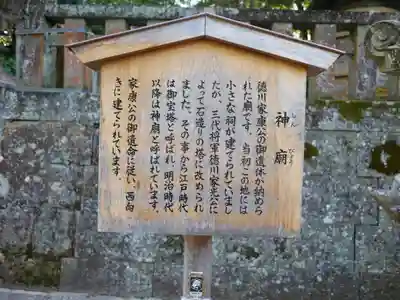 神廟
しんびょう
徳川家康公の御遺体が納めら
れた廟です。当初この地には
小さな祠が建てられていまし
たが、三代将軍徳川家光公に
よって石造りの塔に改められ
ました。その事から江戸時代
は御宝塔と呼ばれ、明治時代
以降は神廟と呼ばれています。
家康公の御遺命に従い西向
きに建てられています。